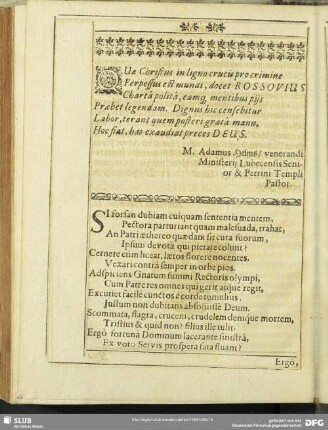 QUæ Christus in ligno crucis pro crimine
Perpessus est mundi, docet ROSSOVIUS
Chartâ politâ, eamq; mentibus pijs
Præbet legendam. Dignus hic censebitur
Labor, terant quem posteri gratâ manu.
Hoc fiat, has exaudiat preces DEUS.
M. Adamus venerandi
Ministerij Lubecensis Seni-
or & Petrini Templi
Pastor.
SI forsan dubiam cuiquam sententia mentem,
Pectora parturiant quam malesuada, trahat,
An Patri æthereo quædam sit cura suorum,
Ipsum devotâ qui pietate colunt?
Cernere cùm liceat, lætos florere nocentes,
Vexari contrà semper in orbe pios.
Adspiciens Gnatum summi Rectoris olympi,
Cum Patre res omnes qui gerit atque regit,
Excutiet facilè cunctos è corde tumultus,
Justum non dubitans absolüisse Deum.
Scommata, flagra, crucem, crudelem denique mortem,
Tristius & quid non? filius ille tulit.
Ergò fortunâ Dominum lacerante sinistrâ,
Ex voto Servis prospera fata fluant?
Ergò,
SLUB
Wir führen Wissen.
gefördert von der
Deutschen Forschungsgemeinschaft